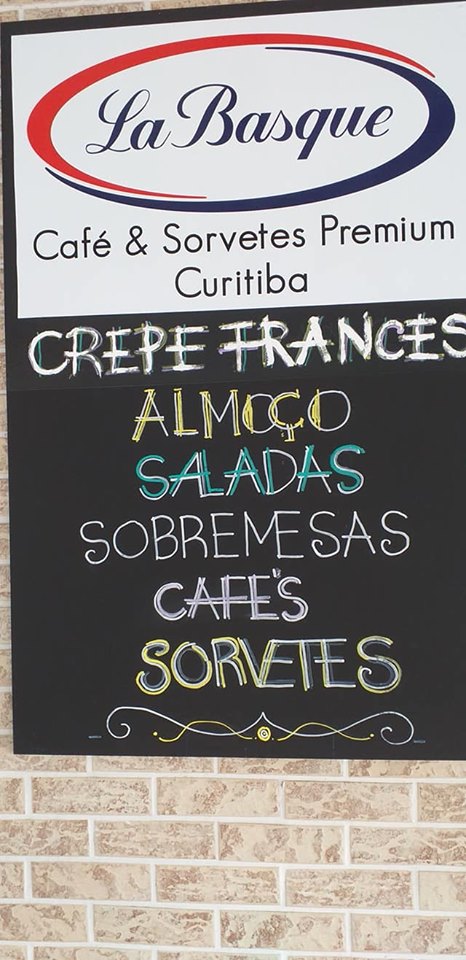 La Basque
Café & Sorvetes Premium
Curitiba
CREPE FRANCES
ALMOÇO
SALADAS
SOBREMESAS
CAFE'S
SORVETES